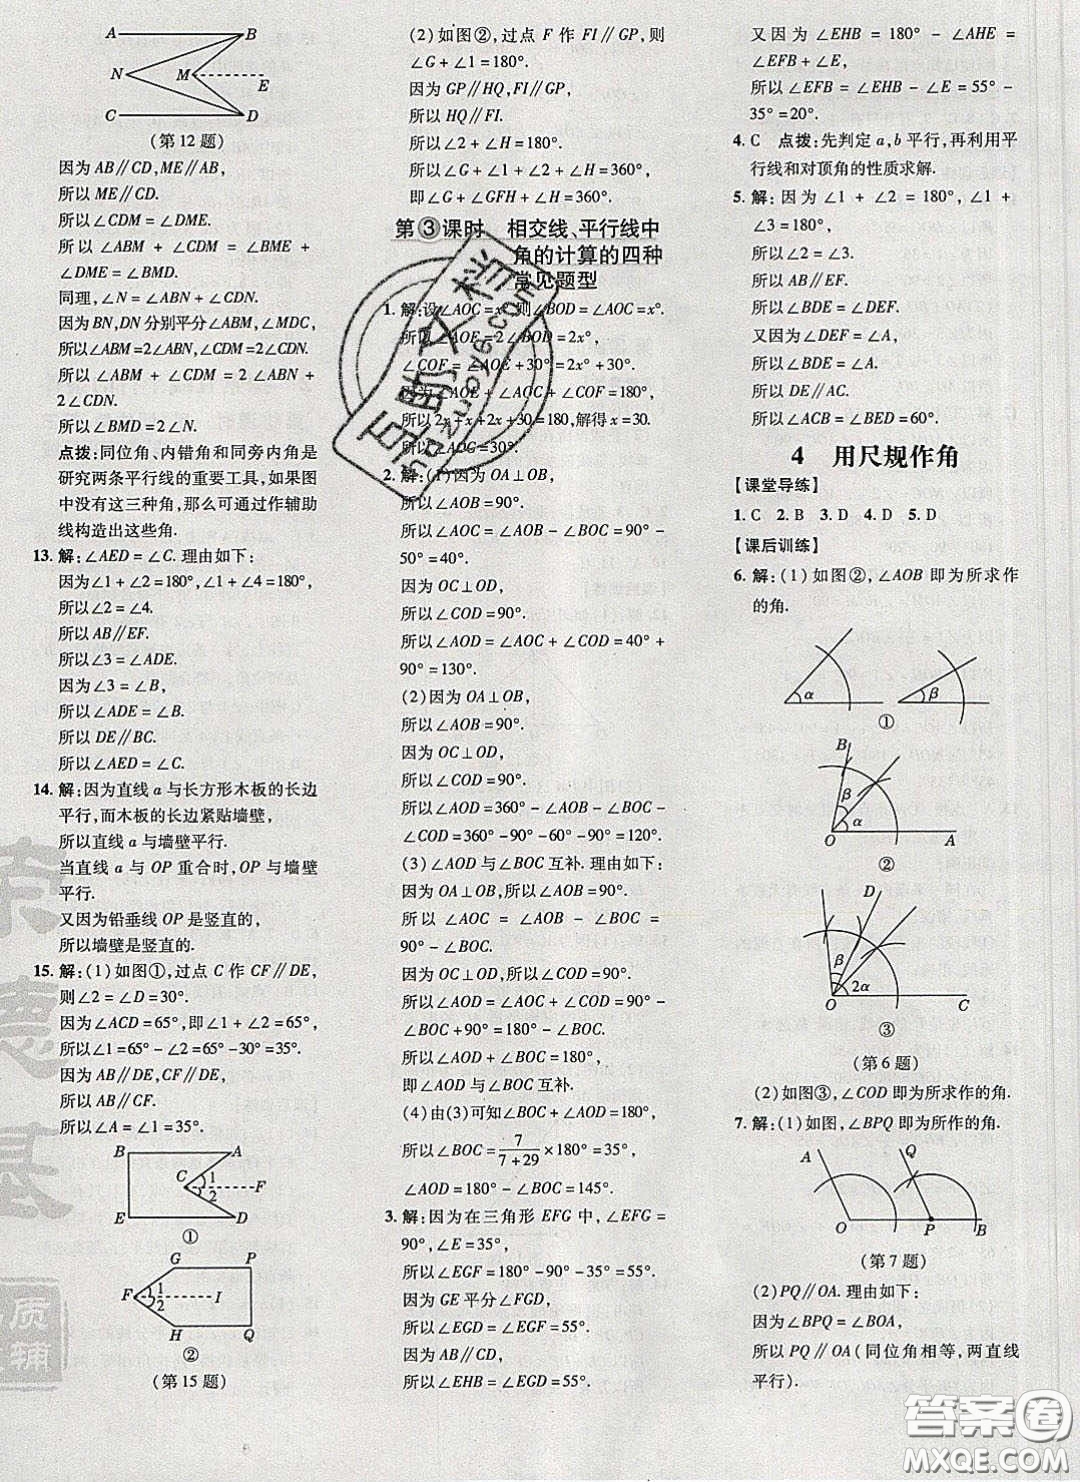 A
B
N
M
E
C
D
(第12题)
因为AB∥CD,ME∥AB,
所以ME∥CD.
所以∠CDM=∠DME.
所以∠ABM+∠CDM=∠BME
+∠DME=∠BMD.
同理,∠N=∠ABN+∠CDN.
因为BN,DN分别平分∠ABM,∠MDC,
所以∠ABM=2∠ABN,∠CDM=
2∠CDN.
所以∠ABM+∠CDM=2∠ABN+
2∠CDN.
所以∠BMD=2∠N.
点拨:同位角、内错角和同旁内角是
研究两条平行线的重要工具,如果图
中没有这三种角,那么可通过作辅助
线构造出这些角.
13.解:∠AED=∠C.理由如下:
因为∠1+∠2=180°,∠1+∠4=180°,
所以∠2=∠4.
所以AB∥EF.
所以∠3=∠ADE.
因为∠3=∠B,
所以∠ADE=∠B.
所以DE∥BC.
所以∠AED=∠C.
14.解:因为直线a与长方形木板的长边
平行,而木板的长边紧贴墙壁,
所以直线a与墙壁平行.
当直线a与OP重合时,OP与墙壁
平行.
又因为铅垂线OP是竖直的,
所以墙壁是竖直的.
15.解:(1)如图①,过点C作CF∥DE,
则∠2=∠D=30°.
因为∠ACD=65°,即∠1+∠2=65°,
所以∠1=65°-∠2=65°-30°=35°.
因为AB∥DE,CF∥DE,
所以AB∥CF.
所以∠A=∠1=35°.
B
A
C
1
2
F
E
D
①
G
P
F
1
2
I
H
Q
②
(第15题)
(2)如图②,过点F作FI∥GP,则
∠G+∠1=180°.
因为GP∥HQ,FI∥GP,
所以HQ∥FI.
所以∠2+∠H=180°.
所以∠G+∠1+∠2+∠H=360°,
即∠G+∠GFH+∠H=360°.
第③课时 相交线、平行线中
角的计算的四种
常见题型
1.解:设∠AOC=x°,则∠BOD=∠AOC=x°.
所以∠AOE=2∠BOD=2x°,
∠COF=∠AOE+30°=2x°+30°.
因为∠AOE+∠AOC+∠COF=180°,
所以2x+x+2x+30=180,解得x=30.
所以∠AOC=30°.
2.解:(1)因为OA⊥OB,
所以∠AOB=90°.
所以∠AOC=∠AOB-∠BOC=90°-
50°=40°.
因为OC⊥OD,
所以∠COD=90°.
所以∠AOD=∠AOC+∠COD=40°+
90°=130°.
(2)因为OA⊥OB,
所以∠AOB=90°.
因为OC⊥OD,
所以∠COD=90°.
所以∠AOD=360°-∠AOB-∠BOC-
∠COD=360°-90°-60°-90°=120°.
(3)∠AOD与∠BOC互补.理由如下:
因为OA⊥OB,所以∠AOB=90°.
所以∠AOC=∠AOB-∠BOC=
90°-∠BOC.
因为OC⊥OD,所以∠COD=90°.
所以∠AOD=∠AOC+∠COD=90°-
∠BOC+90°=180°-∠BOC.
所以∠AOD+∠BOC=180°,
即∠AOD与∠BOC互补.
(4)由(3)可知∠AOD+∠BOC=180°,
所以∠BOC=7/(7+29)×180°=35°,
∠AOD=180°-∠BOC=145°.
3.解:因为在三角形EFG中,∠EFG=
90°,∠E=35°,
所以∠EGF=180°-90°-35°=55°.
因为GE平分∠FGD,
所以∠EGD=∠EGF=55°.
因为AB∥CD,
所以∠EHB=∠EGD=55°.
又因为∠EHB=180°-∠AHE=
∠EFB+∠E,
所以∠EFB=∠EHB-∠E=55°-
35°=20°.
4.C 点拨:先判定a,b平行,再利用平
行线和对顶角的性质求解.
5.解:因为∠1+∠2=180°,∠1+
∠3=180°,
所以∠2=∠3.
所以AB∥EF.
所以∠BDE=∠DEF.
又因为∠DEF=∠A,
所以∠BDE=∠A.
所以DE∥AC.
所以∠ACB=∠BED=60°.
4 用尺规作角
【课堂导练】
1.C 2.B 3.D 4.D 5.D
【课后训练】
6.解:(1)如图②,∠AOB即为所求作
的角.
α
β
①
B
β
α
O
A
②
D
β
2α
O
C
③
(第6题)
(2)如图③,∠COD即为所求作的角.
7.解:(1)如图,∠BPQ即为所作的角.
A
Q
O
P
B
(第7题)
(2)PQ∥OA.理由如下:
因为∠BPQ=∠BOA,
所以PQ∥OA(同位角相等,两直线
平行).
质
辅
答案圈
MXQE.COM